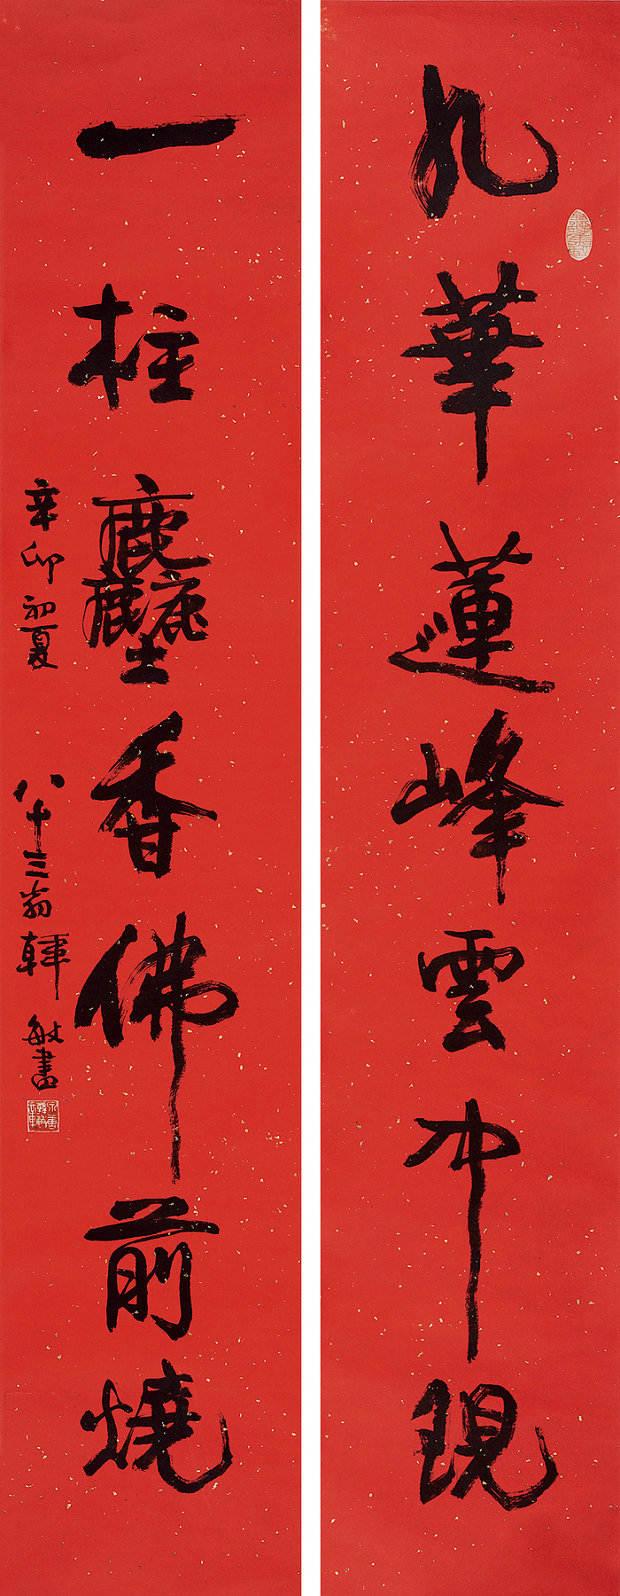 九華蓮峰雲中現
一柱麝香佛前燒
辛卯初夏
八十三翁韓敏書